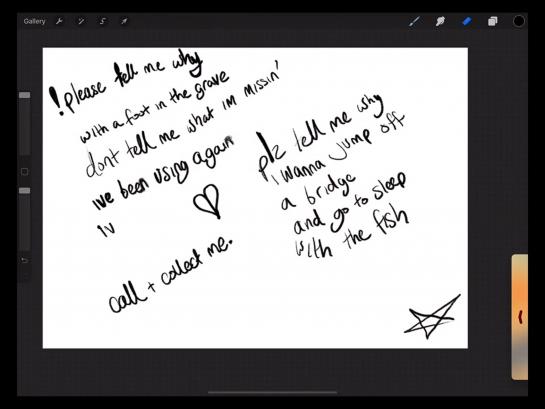 Gallery
! please tell me why
with a foot in the grave
dont tell me what im missin'
ive been using again
iv
call + collect me.
plz tell me why
i wanna jump off
a bridge
and go to sleep
with the fish